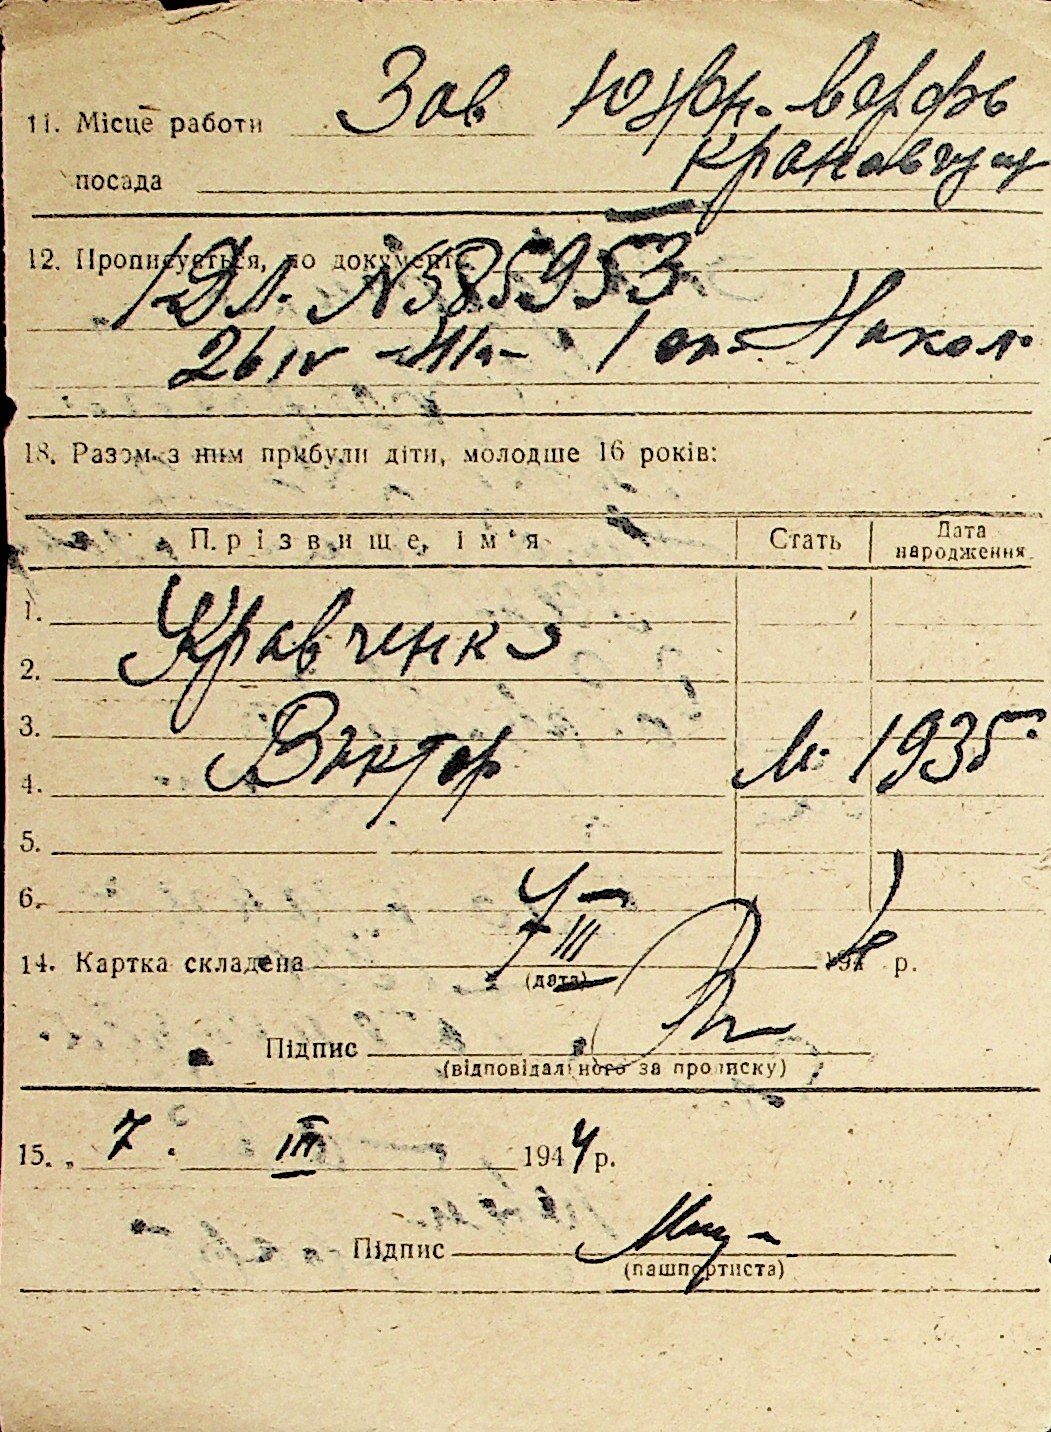 11. Місце работи Зав Южн. верфь
посада крановщиц
12. Прописується, по документі
1 Дл. № 385953
26 IV -41г- 1 от. Никол.
13. Разом з ним прибули діти, молодше 16 років:
Прізвище, ім'я Стать Дата народження
1. Кравченко
2.
3. Виктор м. 1935
4.
5.
6.
14. Картка складена 7/III 194 р.
(дата)
Підпис
(відповідального за прописку)
15. „ 7. III 1944 р.
Підпис
(пашпортиста)